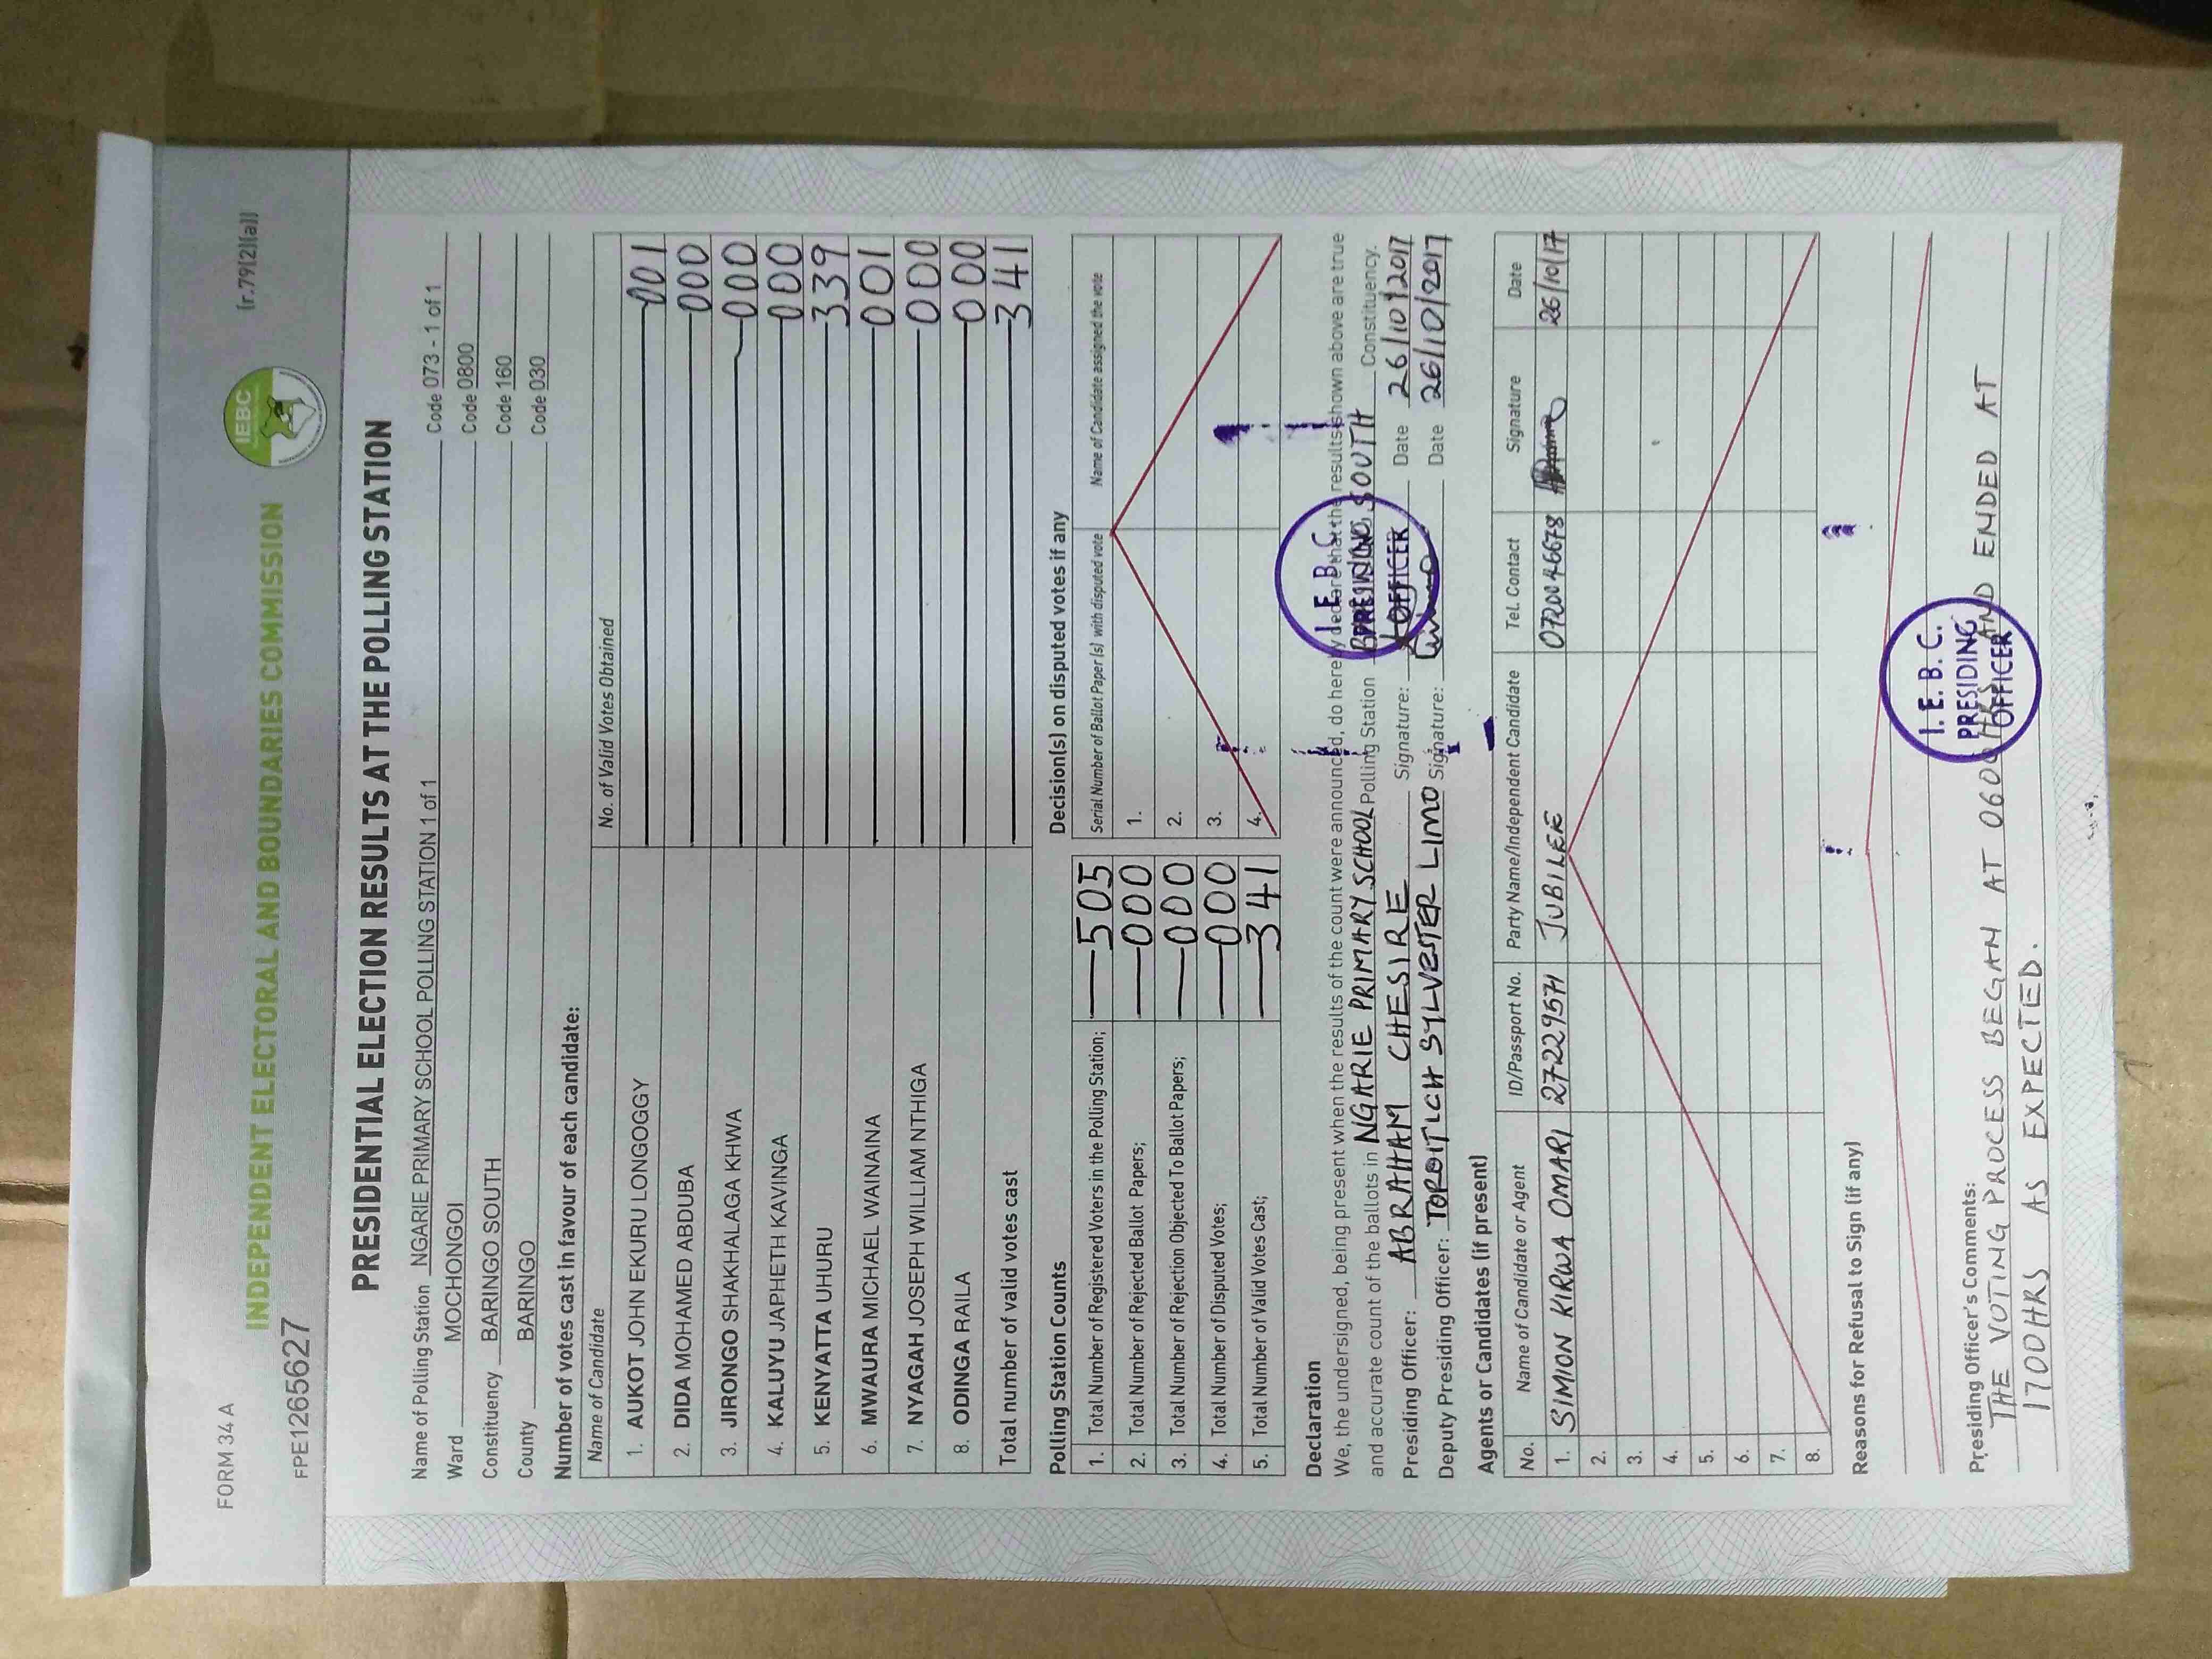 FORM 34 A
(r.79(2)(a))
IEBC
INDEPENDENT ELECTORAL AND BOUNDARIES COMMISSION
FPE1265627
PRESIDENTIAL ELECTION RESULTS AT THE POLLING STATION
Name of Polling Station NGARIE PRIMARY SCHOOL POLLING STATION 1 of 1 Code 073 - 1 of 1
Ward MOCHONGOI Code 0800
Constituency BARINGO SOUTH Code 160
County BARINGO Code 030
Number of votes cast in favour of each candidate:
Name of Candidate No. of Valid Votes Obtained
1. AUKOT JOHN EKURU LONGOGGY 001
2. DIDA MOHAMED ABDUBA 000
3. JIRONGO SHAKHALAGA KHWA 000
4. KALUYU JAPHETH KAVINGA 000
5. KENYATTA UHURU 339
6. MWAURA MICHAEL WAINAINA 001
7. NYAGAH JOSEPH WILLIAM NTHIGA 000
8. ODINGA RAILA 000
Total number of valid votes cast 341
Polling Station Counts
1. Total Number of Registered Voters in the Polling Station; 505
2. Total Number of Rejected Ballot Papers; 000
3. Total Number of Rejection Objected To Ballot Papers; 000
4. Total Number of Disputed Votes; 000
5. Total Number of Valid Votes Cast; 341
Decision(s) on disputed votes if any
Serial Number of Ballot Paper (s) with disputed vote Name of Candidate assigned the vote
1.
2.
3.
4.
Declaration
We, the undersigned, being present when the results of the count were announced, do hereby declare that the results shown above are true
and accurate count of the ballots in NGARIE PRIMARY SCHOOL Polling Station BARINGO SOUTH Constituency.
Presiding Officer: ABRAHAM CHESIRE Signature: Date 26/10/2017
Deputy Presiding Officer: TOROITICH SYLVESTER LIMO Signature: Date 26/10/2017
I. E. B. C.
PRESIDING
OFFICER
Agents or Candidates (if present)
No. Name of Candidate or Agent ID/Passport No. Party Name/Independent Candidate Tel. Contact Signature Date
1. SIMION KIRWA OMARI 27229571 JUBILEE 0720046678 26/10/17
2.
3.
4.
5.
6.
7.
8.
Reasons for Refusal to Sign (if any)
I. E. B. C.
PRESIDING
OFFICER
Presiding Officer's Comments:
THE VOTING PROCESS BEGAN AT 0600HRS AND ENDED AT
1700HRS AS EXPECTED.